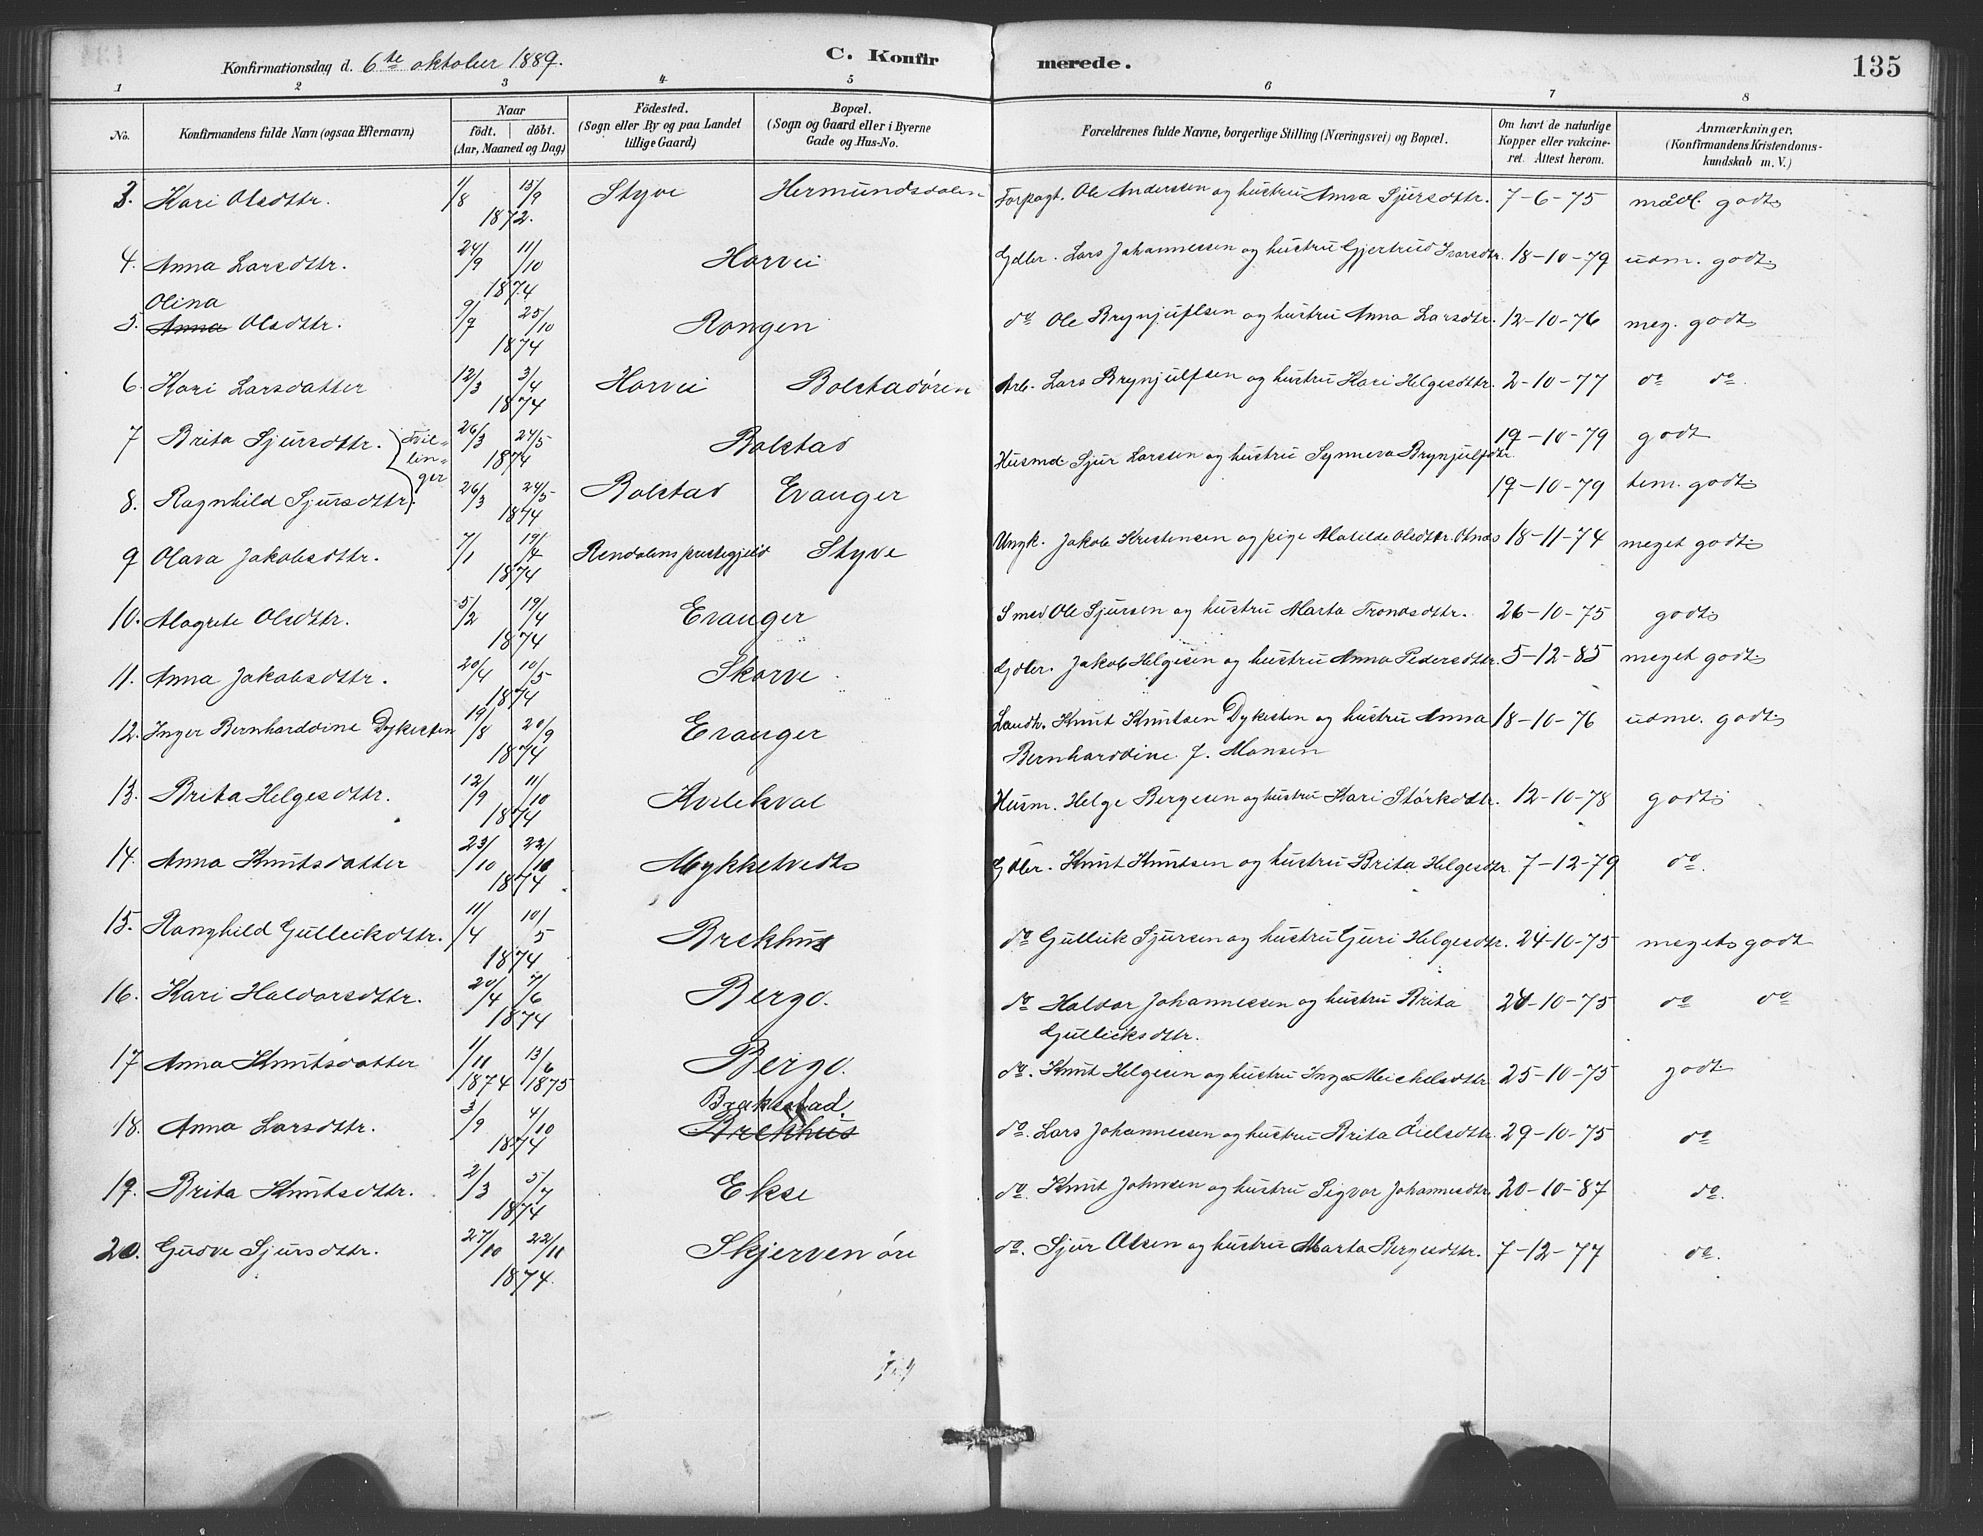 Konfirmationsdag d. 6te oktober 1889. C. Konfirmerede. 135
1 2 3 4 5 6 7 8
No. Konfirmandens fulde Navn (ogsaa Efternavn) Naar født. døbt. (Aar, Maaned og Dag) Födested. (Sogn eller By og paa Landet tillige Gaard) Bopæl. (Sogn og Gaard eller i Byerne Gade og Hus-No. Forældrenes fulde Navne, borgerlige Stilling (Næringsvei) og Bopæl. Om havt de naturlige Kopper eller vakcineret. Attest herom. Anmærkninger. (Konfirmandens Kristendomskundskab m. V.)
3. Kari Olsdttr. 1/8 13/9 1872. Styve Hermundsdalen Forpagt. Ole Anderssen og hustru Anna Sjursdttr. 7-6-75 mådl. godt
4. Anna Larsdttr. 24/9 11/10 1874 Horvei Gdbr. Lars Johannessen og hustru Gjertrud Ivarsdtr. 18-10-79 udm. godt
Olina
5. Anna Olsdttr. 9/9 25/10 1874 Rongen do Ole Brynjulfsen og hustru Anna Larsdtr. 12-10-76 meg. godt
6. Kari Larsdatter 12/3 3/4 1874 Horvei Bolstadøren Arb. Lars Brynjulfsen og hustru Kari Helgesdttr. 2-10-77 do do.
7 Brita Sjursdttr. Tvillinger 26/3 24/5 1874 Bolstad Husmd. Sjur Larssen og hustru Synneva Brynjulfsdtr. 19-10-79 godt
8. Ragnhild Sjursdttr. 26/3 24/5 1874 Bolstad Evanger 19-10-79 tem. godt
9 Olava Jakobsdttr. 7/1 19/4 1874 Rendalens præstegjeld Styve Ungk. Jakob Kristensen og pige Matilde Olsdttr. Otnæs 18-11-74 meget godt
10. Magrete Olsdttr. 5/2 19/4 1874 Evanger Smed Ole Sjursen og hustru Marta Trondsdttr. 26-10-75 godt
11. Anna Jakobsdttr. 20/4 10/5 1874 Skorve Gdbr. Jakob Helgesen og hustru Anna Pedersdttr. 5-12-85 meget godt
12. Inger Bernharddine Dykesten 19/8 20/9 1874 Evanger Landh. Knut Knutsen Dykesten og hustru Anna 18-10-76 udm. godt
Bernharddine J. Monsen
13. Brita Helgesdttr. 12/9 11/10 1874 Kvilekval Husm. Helge Bergesen og hustru Kari Störksdtr. 12-10-78 godt
14. Anna Knutsdatter 23/10 22/10 1874 Mykketvedt Gdbr. Knut Knutsen og hustru Brita Helgesdtr. 7-12-79 do.
15. Ranghild Gulleiksdttr. 11/4 10/5 1874 Brekhus do Gulleik Sjursen og hustru Guri Helgesdtr. 24-10-75 meget godt
16. Kari Haldorsdttr. 20/4 7/6 1874 Bergo. do Haldor Johannessen og hustru Brita 20-10-75 do do
Gulleiksdttr.
17 Anna Knutsdatter 1/11 1874 13/6 1875 Bergo. do. Knut Helgesen og hustru Inga Meichelsdttr 25-10-75 godt
Brakestad.
18. Anna Larsdttr. 3/9 4/10 1874 Brekhus do. Lars Johannessen og hustru Brita Öielsdttr. 29-10-75 do
19. Brita Knutsdttr. 2/3 5/7 1874 Ekse do. Knut Johnsen og hustru Sigvor Johannesdtr 20-10-87 do.
20. Gudve Sjursdttr. 27/10 22/11 1874. Skjervenöre do. Sjur Olsen og hustru Marta Bergesdttr. 7-12-77 do.